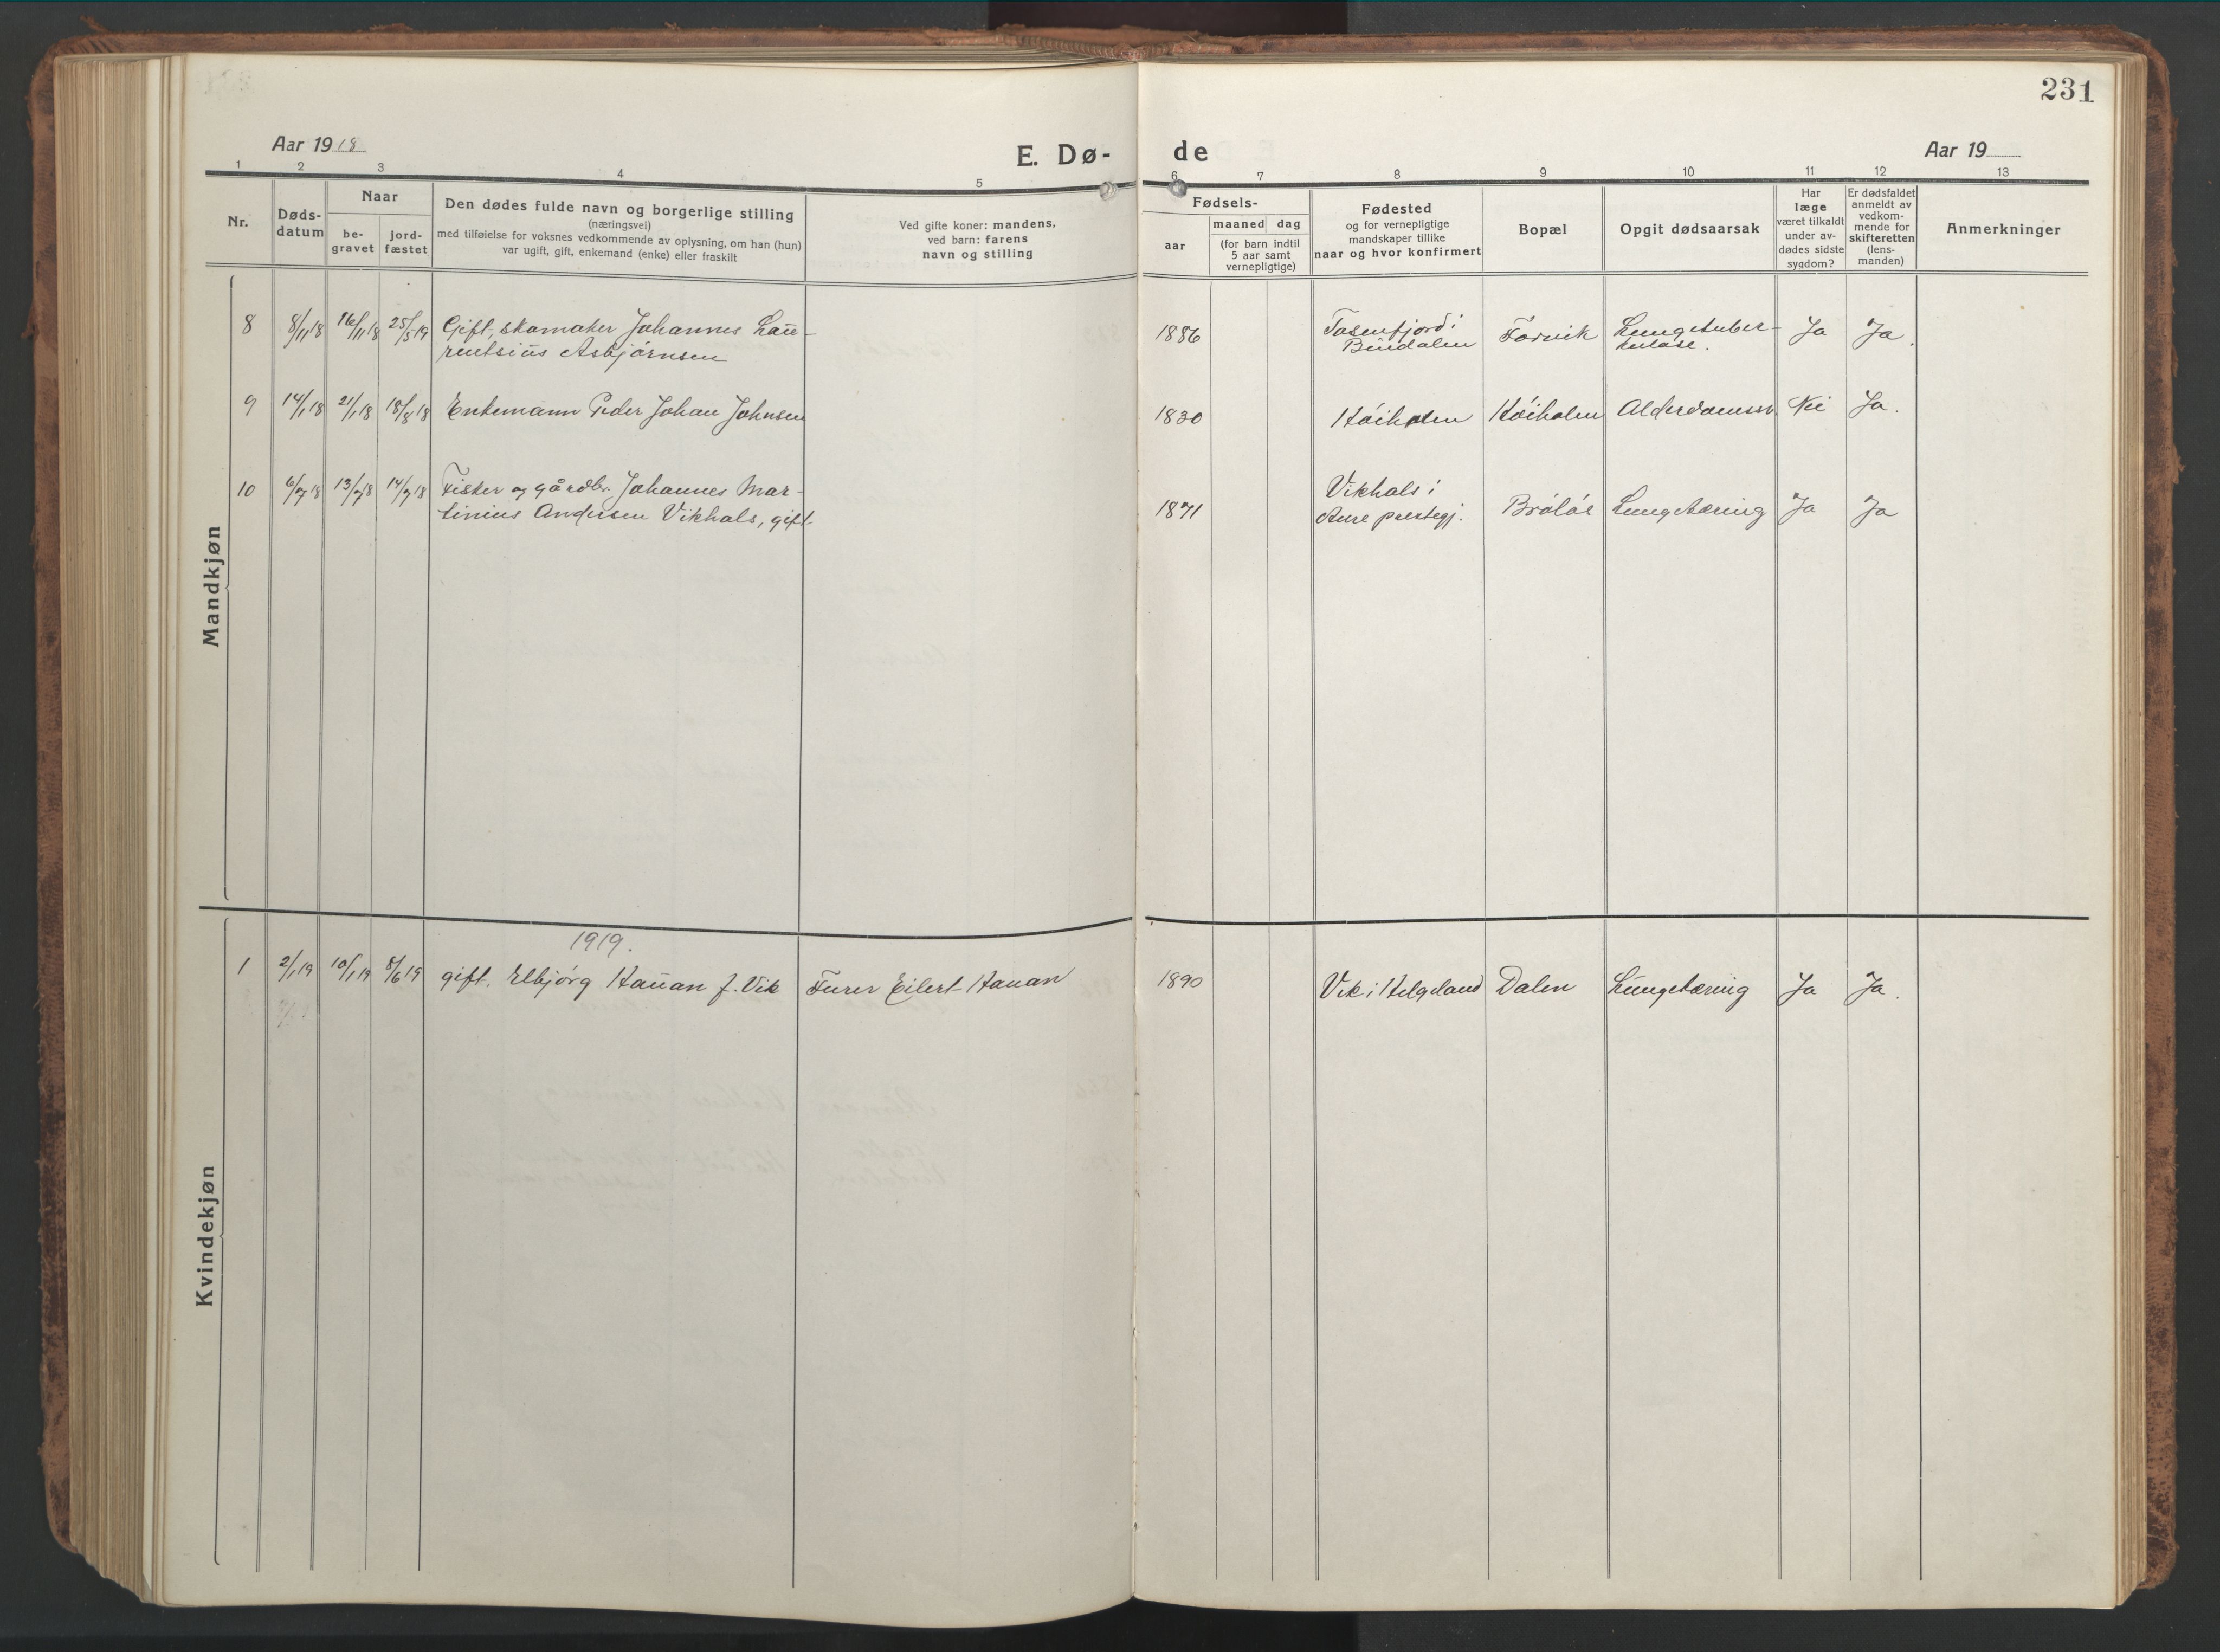 231
Aar 1918
E. Dø-
de
Aar 19
1 2 3 4 5 6 7 8 9 10 11 12 13
Nr.
Døds-
datum
Naar
be-
gravet
jord-
fæstet
Den dødes fulde navn og borgerlige stilling
(næringsvei)
med tilføielse for voksnes vedkommende av oplysning, om han (hun)
var ugift, gift, enkemand (enke) eller fraskilt
Ved gifte koner: mandens,
ved barn: farens
navn og stilling
Fødsels-
aar
maaned dag
(for barn indtil
5 aar samt
vernepligtige)
Fødested
og for vernepligtige
mandskaper tillike
naar og hvor konfirmert
Bopæl
Opgit dødsaarsak
Har
læge
været tilkaldt
under av-
dødes sidste
sygdom?
Er dødsfaldet
anmeldt av
vedkom-
mende for
skifteretten
(lens-
manden)
Anmerkninger
Mandkjøn
8 8/11 18 16/11 18 25/5 19 Gift, skomaker Johannes Lau-
rentsius Asbjørnsen
1886 Tosenfjord i
Bindalen
Forvik Lungetuber-
kulose.
Ja Ja.
9 14/1 18 21/1 18 18/8 18 Enkemann Peder Johan Johnsen 1830 Höiholm Höiholm Alderdomssv. Nei Ja.
10 6/7 18 13/7 18 14/7 18 Fisker og gårdbr. Johannes Mar-
tinius Andersen Vikhals, gift.
1871 Vikhals i
Aure prestegj.
Bröløs Lungetæring Ja Ja
Kvindekjøn
1919.
1 2/1 19 10/1 19 8/6 19 gift. Elbjørg Hauan f. Vik Furer Eilert Hauan 1890 Vik i Helgeland Dalen Lungetæring Ja Ja.